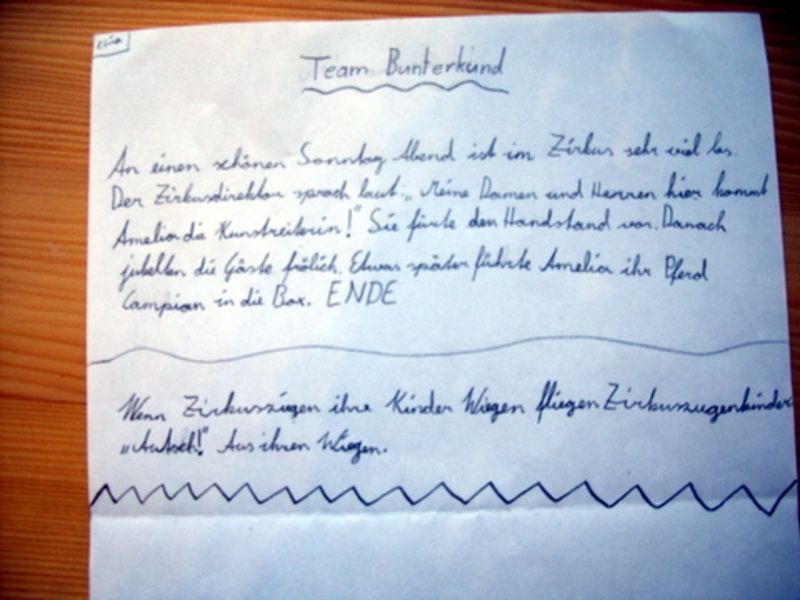 Elisa
Team Bunterkund
An einen schönen Sonntag Abend ist im Zirkus sehr viel los.
Der Zirkusdirektor sprach laut: „Meine Damen und Herren hier kommt
Amelia die Kunstreiterin!" Sie fürte den Handstand vor. Danach
jubelten die Gäste frölich. Etwas später führte Amelia ihr Pferd
Campion in die Box. ENDE
Wenn Zirkuszigen ihre Kinder Wiegen fliegen Zirkuszugenkinder
„Autsch!" Aus ihren Wiegen.